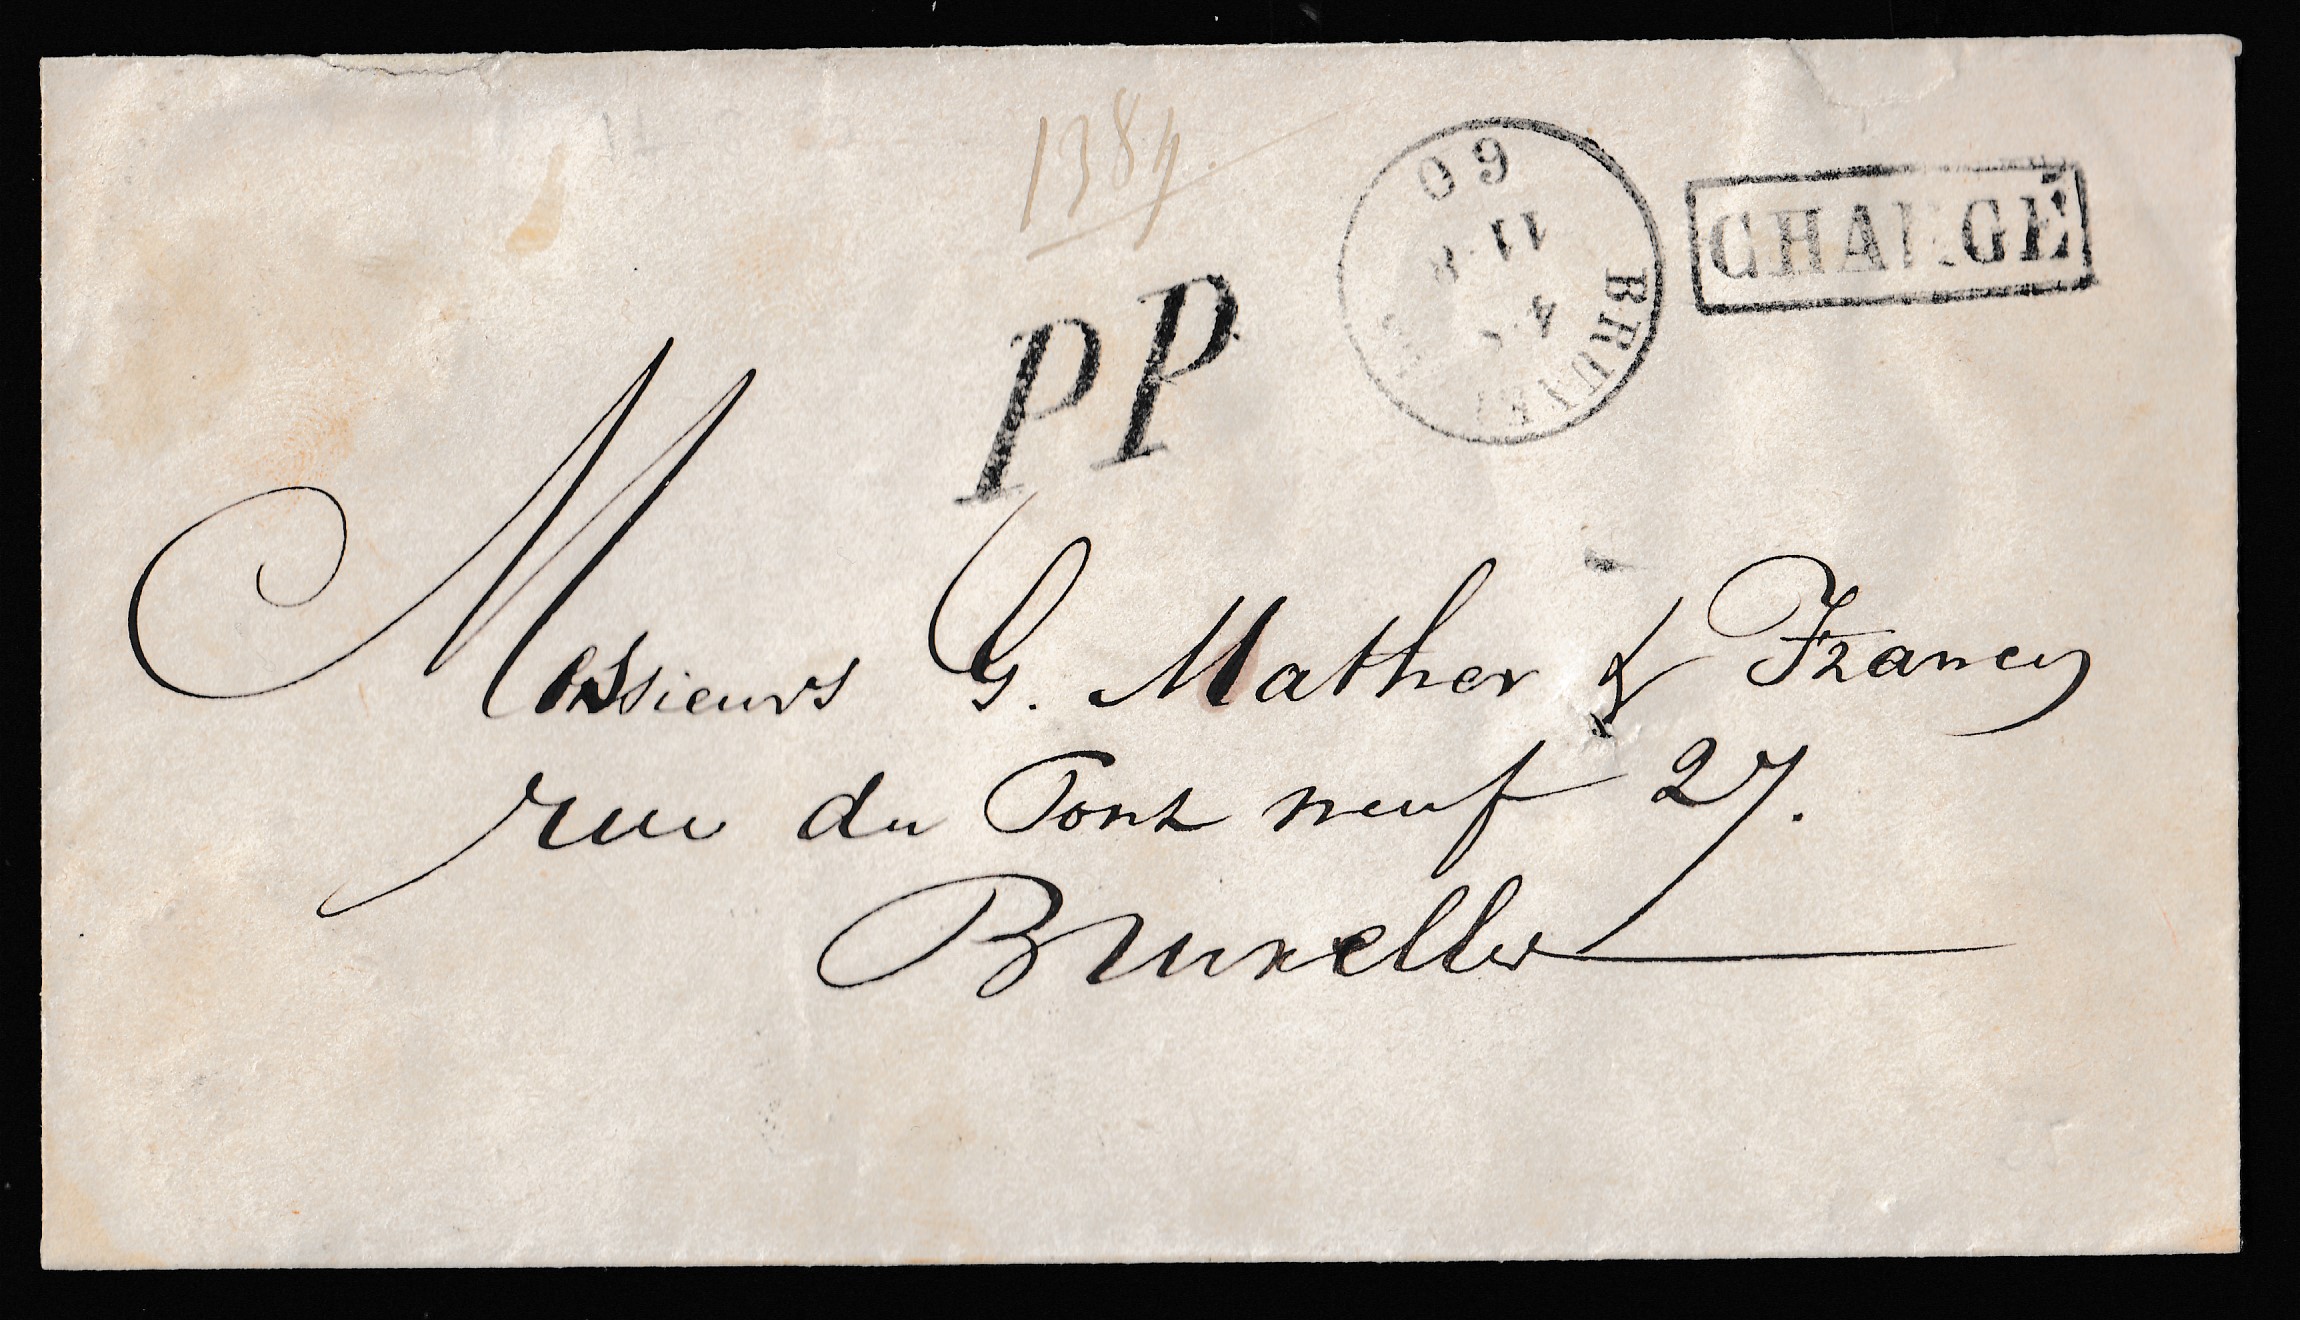 1384
CHARGÉ
BRUXEL
4
11 8
60
PP
Messieurs G. Mather & Francy
rue du Pont neuf 27.
Bruxelles